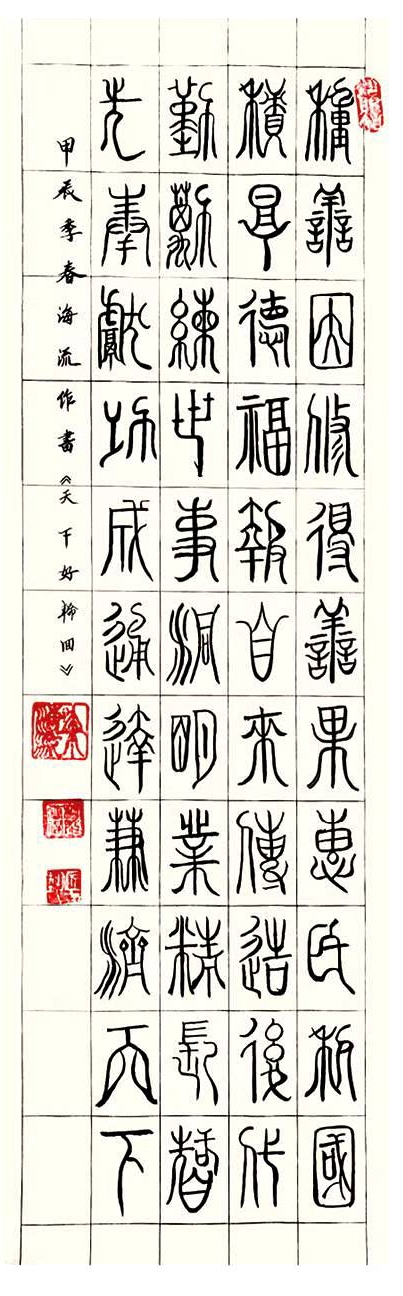 種善因修得善果惠民利國
積厚德福報自來傳造後代
勤勵練世事洞明業精長智
先奉獻功成通達兼濟天下
甲辰季春海流作書《天下好輪回》